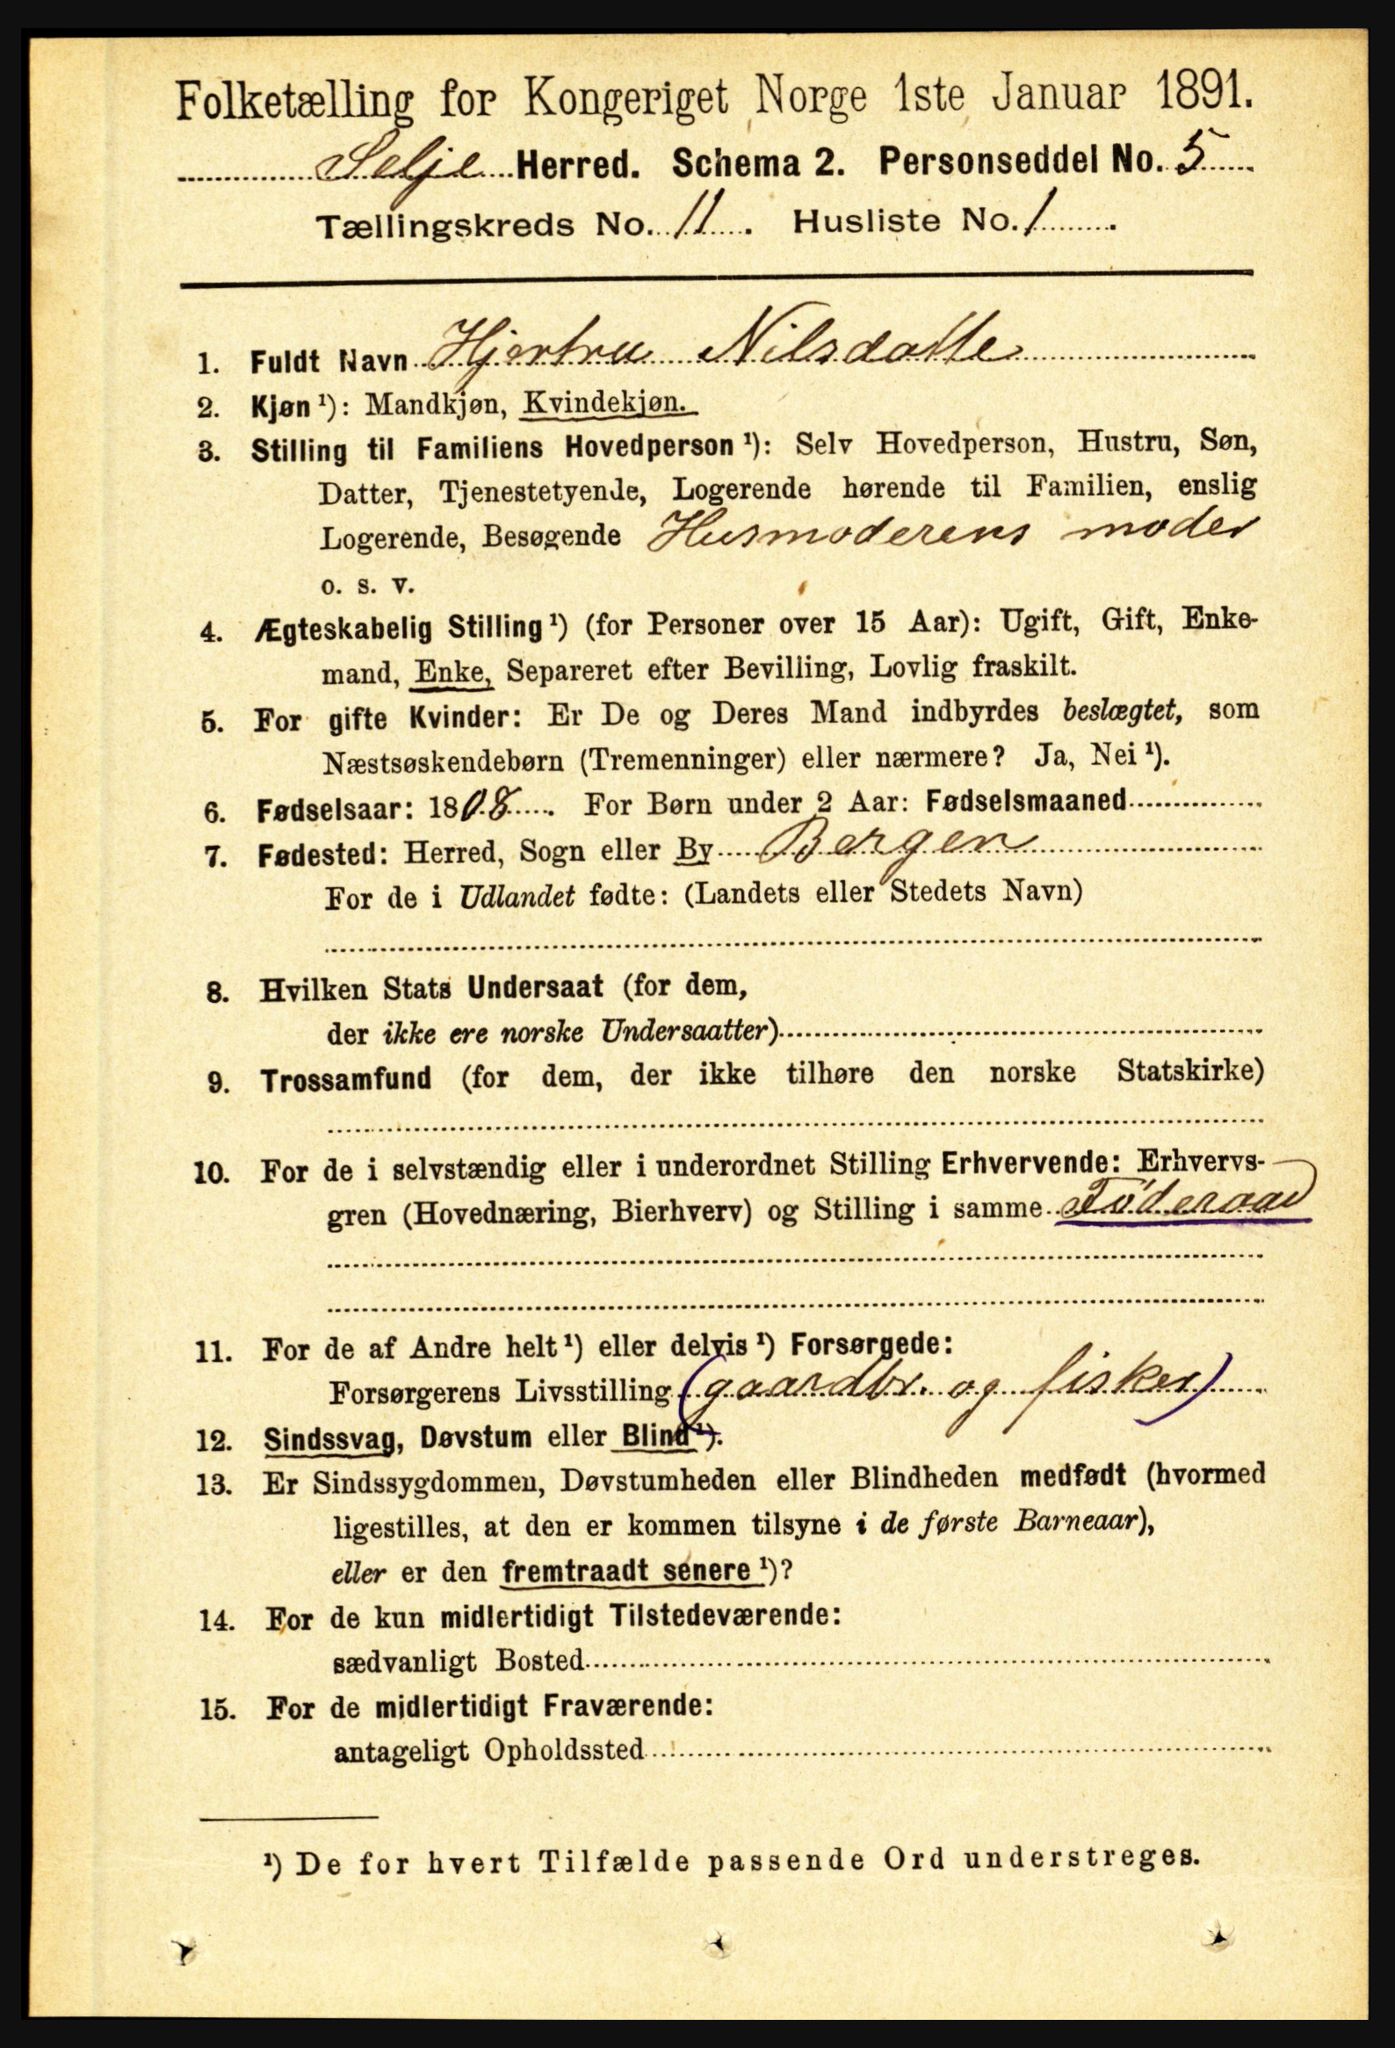 Folketælling for Kongeriget Norge 1ste Januar 1891.
Selje Herred. Schema 2. Personseddel No. 5
Tællingskreds No. 11. Husliste No. 1.
1. Fuldt Navn Hjertru Nilsdatte
2. Kjøn ¹): Mandkjøn, Kvindekjøn.
3. Stilling til Familiens Hovedperson ¹): Selv Hovedperson, Hustru, Søn,
Datter, Tjenestetyende, Logerende hørende til Familien, enslig
Logerende, Besøgende Husmoderens moder
o. s. v.
4. Ægteskabelig Stilling ¹) (for Personer over 15 Aar): Ugift, Gift, Enke-
mand, Enke, Separeret efter Bevilling, Lovlig fraskilt.
5. For gifte Kvinder: Er De og Deres Mand indbyrdes beslægtet, som
Næstsøskendebørn (Tremenninger) eller nærmere? Ja, Nei ¹).
6. Fødselsaar: 1808. For Børn under 2 Aar: Fødselsmaaned
7. Fødested: Herred, Sogn eller By Bergen
For de i Udlandet fødte: (Landets eller Stedets Navn)
8. Hvilken Stats Undersaat (for dem,
der ikke ere norske Undersaatter)
9. Trossamfund (for dem, der ikke tilhøre den norske Statskirke)
10. For de i selvstændig eller i underordnet Stilling Erhvervende: Erhvervs-
gren (Hovednæring, Bierhverv) og Stilling i samme Føderaad
11. For de af Andre helt ¹) eller delvis ¹) Forsørgede:
Forsørgerens Livsstilling (gaardbr. og fisker)
12. Sindssvag, Døvstum eller Blind ¹).
13. Er Sindssygdommen, Døvstumheden eller Blindheden medfødt (hvormed
ligestilles, at den er kommen tilsyne i de første Barneaar),
eller er den fremtraadt senere ¹)?
14. For de kun midlertidigt Tilstedeværende:
sædvanligt Bosted
15. For de midlertidigt Fraværende:
antageligt Opholdssted
¹) De for hvert Tilfælde passende Ord understreges.